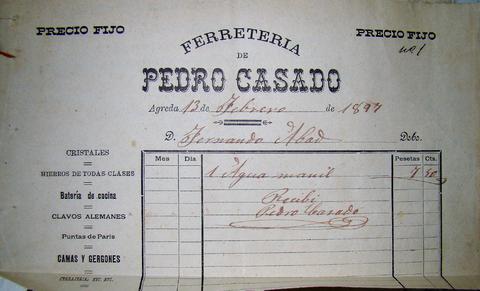 PRECIO FIJO
PRECIO FIJO
no 1
FERRETERIA
DE
PEDRO CASADO
Agreda 13 de Febrero de 1897
D. Fernando Abad Debe.
CRISTALES
HIERROS DE TODAS CLASES
Batería de cocina
CLAVOS ALEMANES
Puntas de Paris
CAMAS Y GERGONES
Mes Dia Pesetas Cts.
1 Agua manil 7 50
Recibi
Pedro Casado